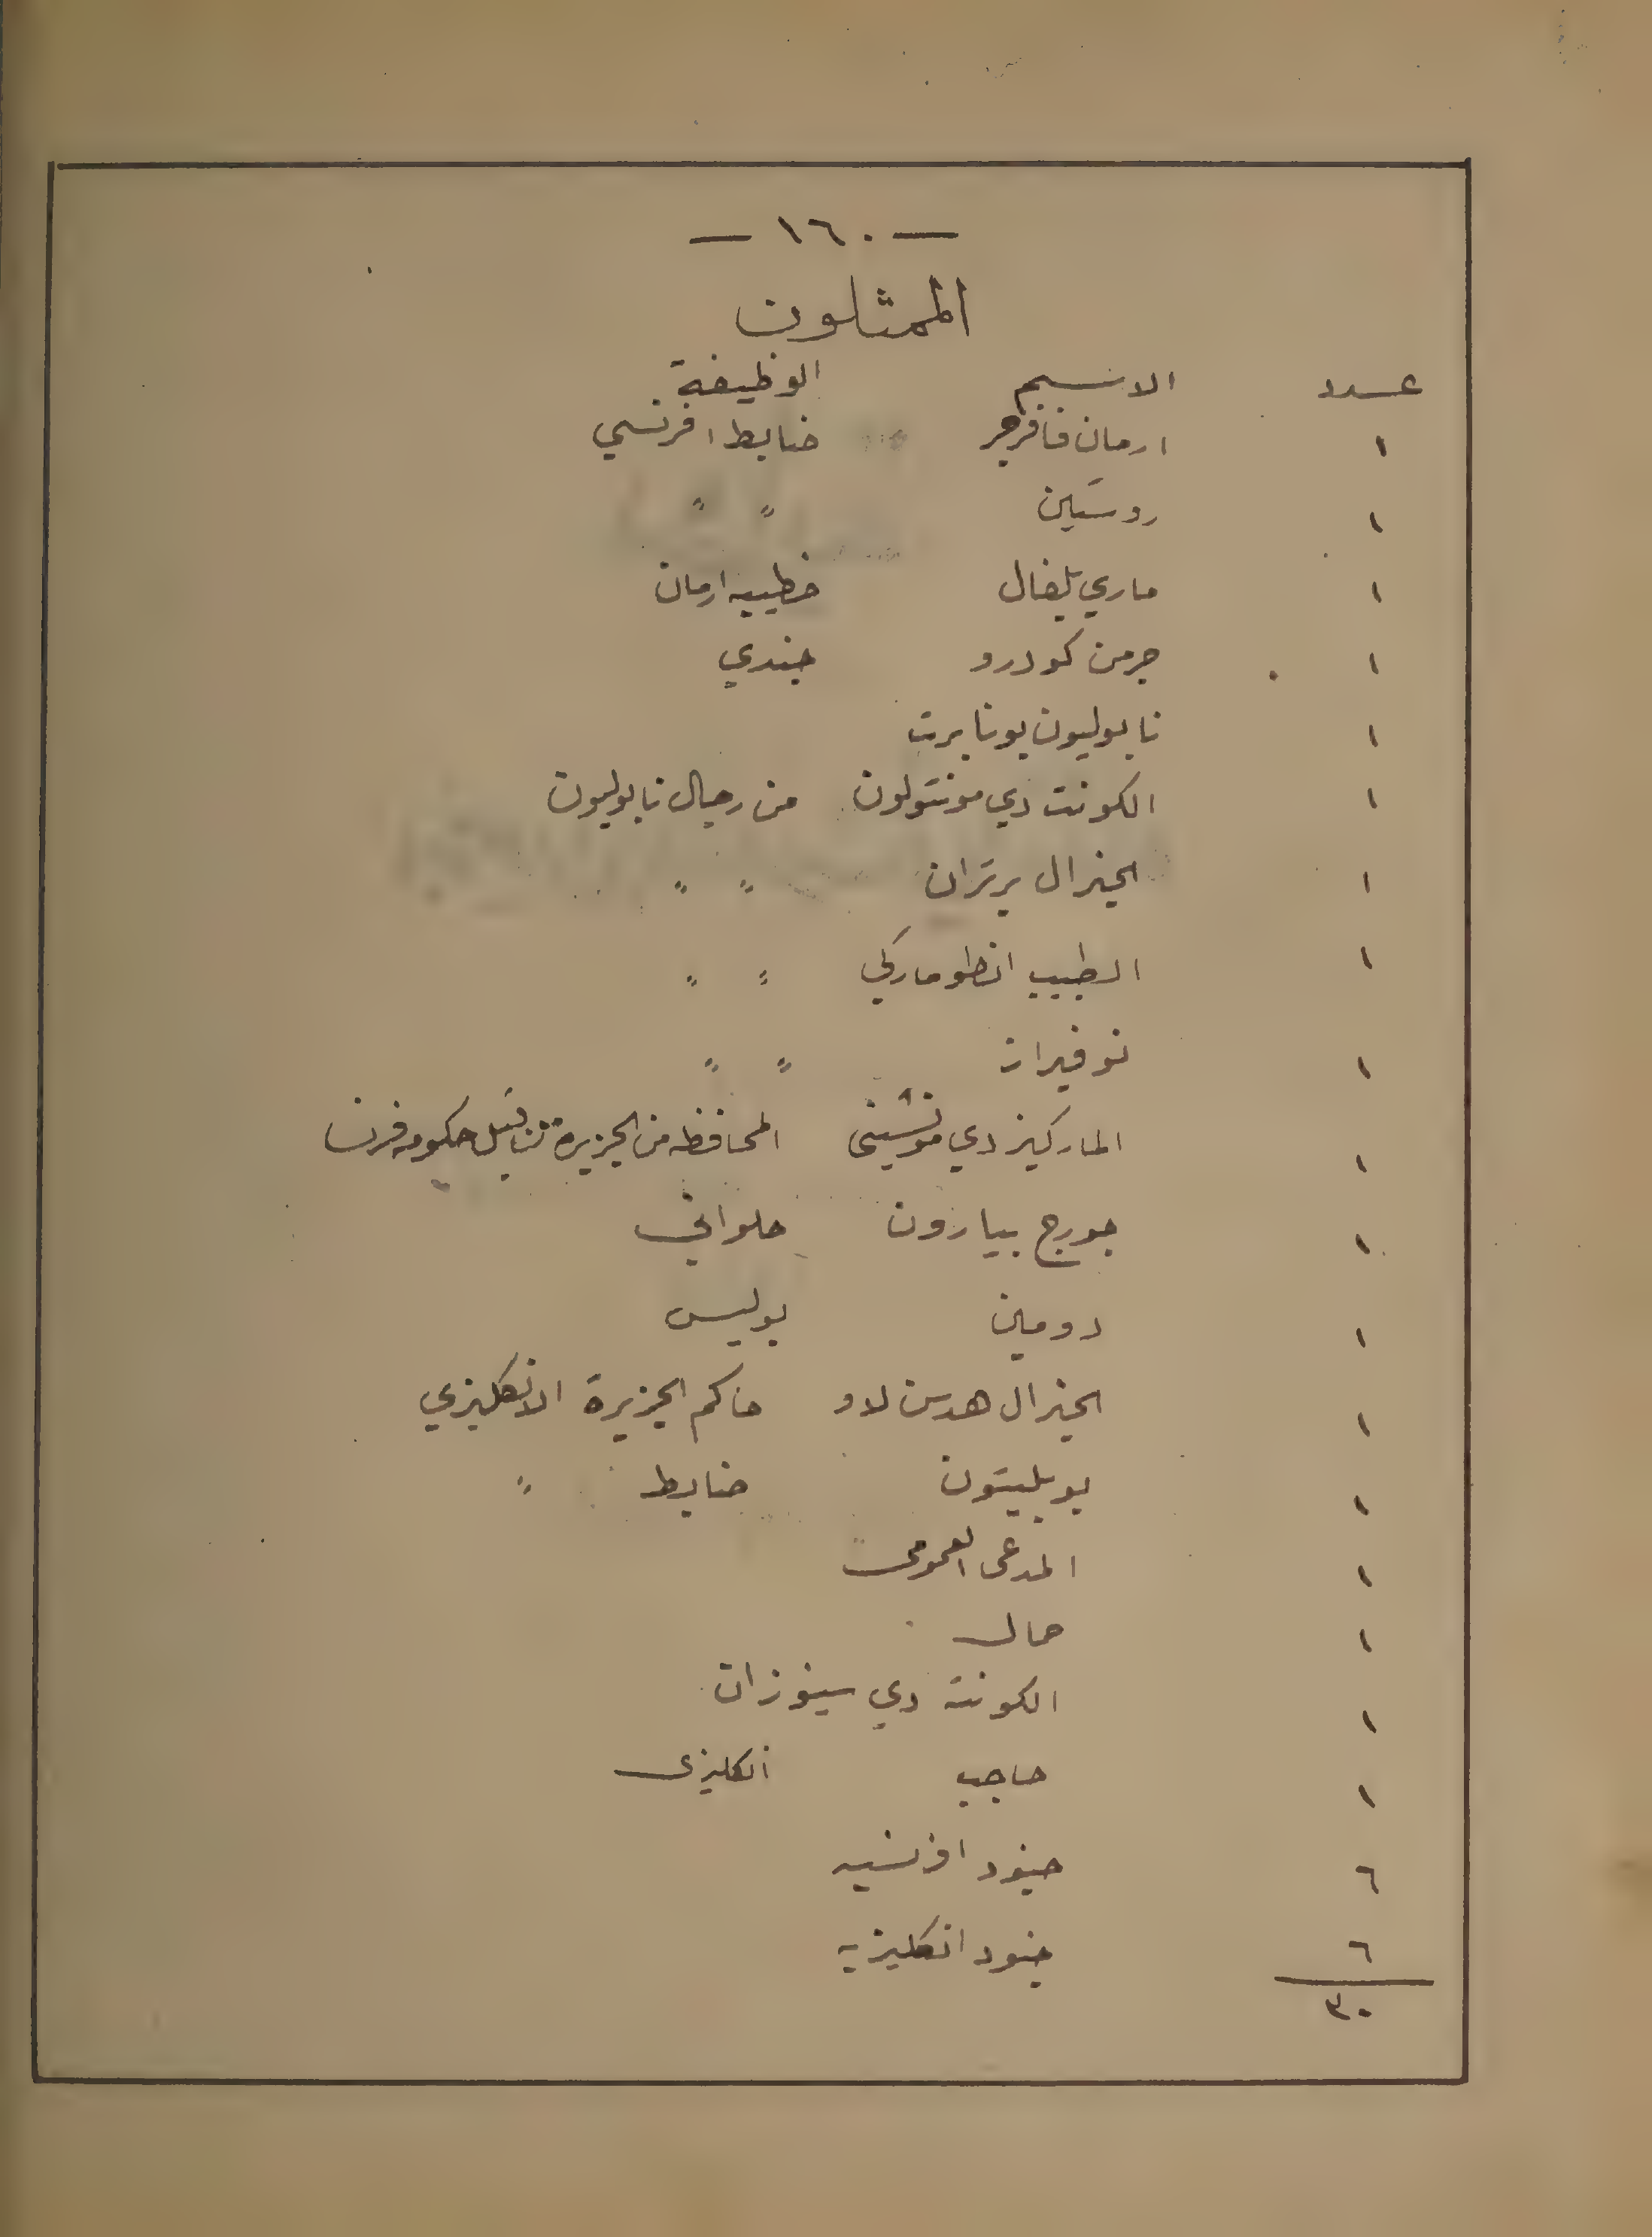 — ١٦٠ —
الممثلون
عدد الاسم الوظيفة
١ ارمان فافرجر ضابط افرنسي
١ روستين " "
١ ماري بلفال خطيبه ارمان
١ جرمن كودرو جندي
١ نابوليون بونابرت
١ الكونت دي مونتولون من رجال نابوليون
١ الجنرال برتران " "
١ الطبيب انطوماركي " "
١ نوفيراز " "
١ الماركيز دي مونشينى المحافظه من الجزيرة من قبل حكومه فرنسا
١ جورج بيارون حلواني
١ دومين بوليس
١ الجنرال هدسن لاو حاكم الجزيرة الانكليزي
١ بوبليتون ضابط "
١ المدعى العمومي
١ حمال
١ الكونتة دي سينوزان
١ حاجب انكليزى
٦ جنود افرنسيه
٦ جنود انكليزيه
٣٠